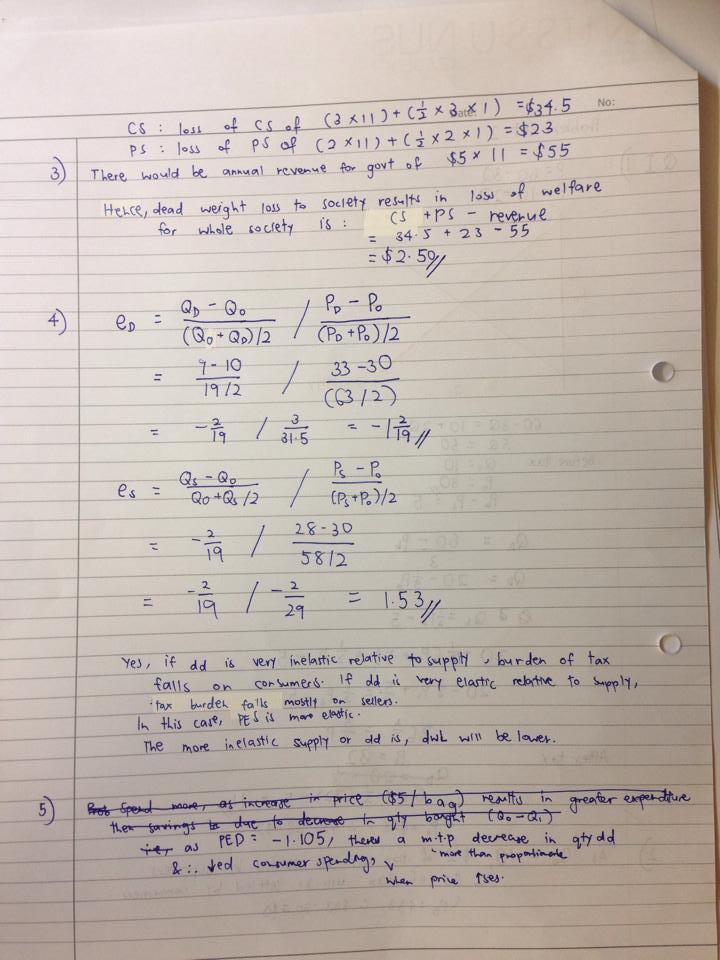 No:
Date:
CS : loss of CS of (3 × 11) + (½ × 3 × 1) = $34.5
PS : loss of PS of (2 × 11) + (½ × 2 × 1) = $23
3) There would be annual revenue for govt of $5 × 11 = $55
Hence, dead weight loss to society results in loss of welfare
for whole society is : CS + PS - revenue
= 34.5 + 23 - 55
= $2.50//
4) eD = (QD - Q0) / ((Q0 + QD)/2) / (PD - P0) / ((PD + P0)/2)
= (9 - 10) / (19/2) / (33 - 30) / (63/2)
= -2/19 / 3/31.5 = -1 2/19 //
es = (Qs - Q0) / (Q0 + Qs /2) / (Ps - P0) / ((Ps + P0)/2)
= -2/19 / (28 - 30) / (58/2)
= -2/19 / -2/29 = 1.53//
Yes, if dd is very inelastic relative to supply, burden of tax
falls on consumers. If dd is very elastic relative to supply,
tax burden falls mostly on sellers.
In this case, PES is more elastic.
The more inelastic supply or dd is, dwl will be lower.
5) Spend more, as increase in price ($5/bag) results in greater expenditure
then savings due to decrease in qty bought (Q0 - Q1)
as PED = -1.105, theres a m.t.p decrease in qty dd
more than proportionate
& ∴ ↓ed consumer spending,
when price ↑ses.